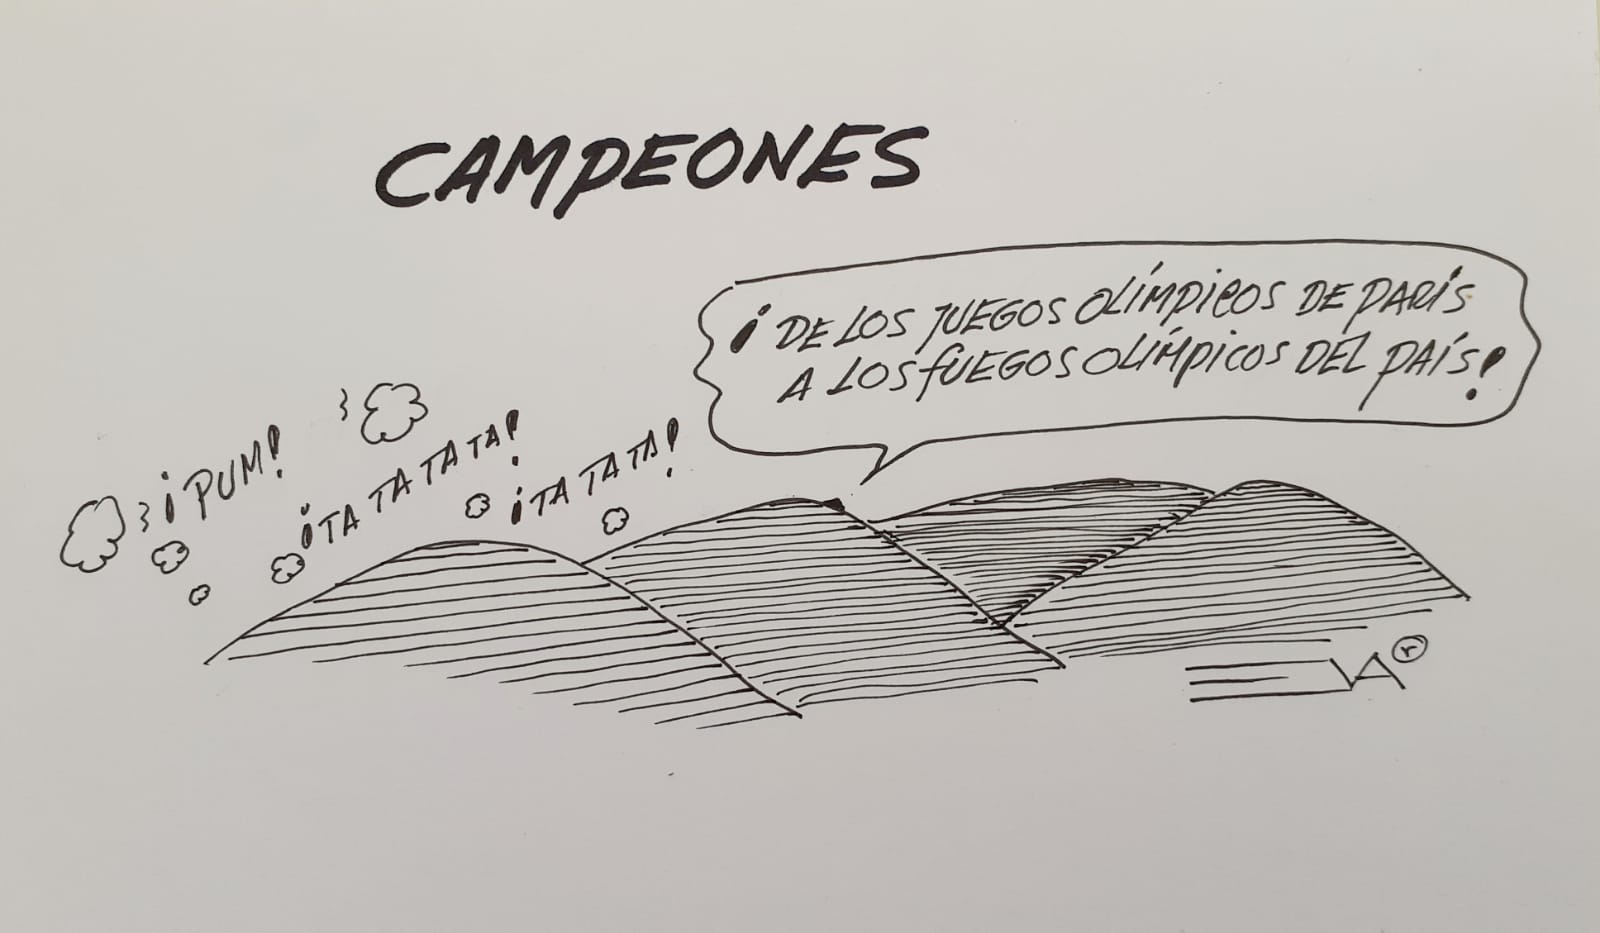 CAMPEONES
¡DE LOS JUEGOS OLÍMPICOS DE PARÍS
A LOS fUEGOS OLÍMPICOS DEL PAÍS!
¡PUM!
¡TA TA TA TA TA!
¡TA TA TA!